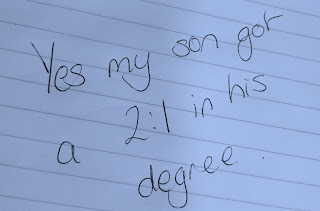 Yes my son got
a 2:1 in his
degree.